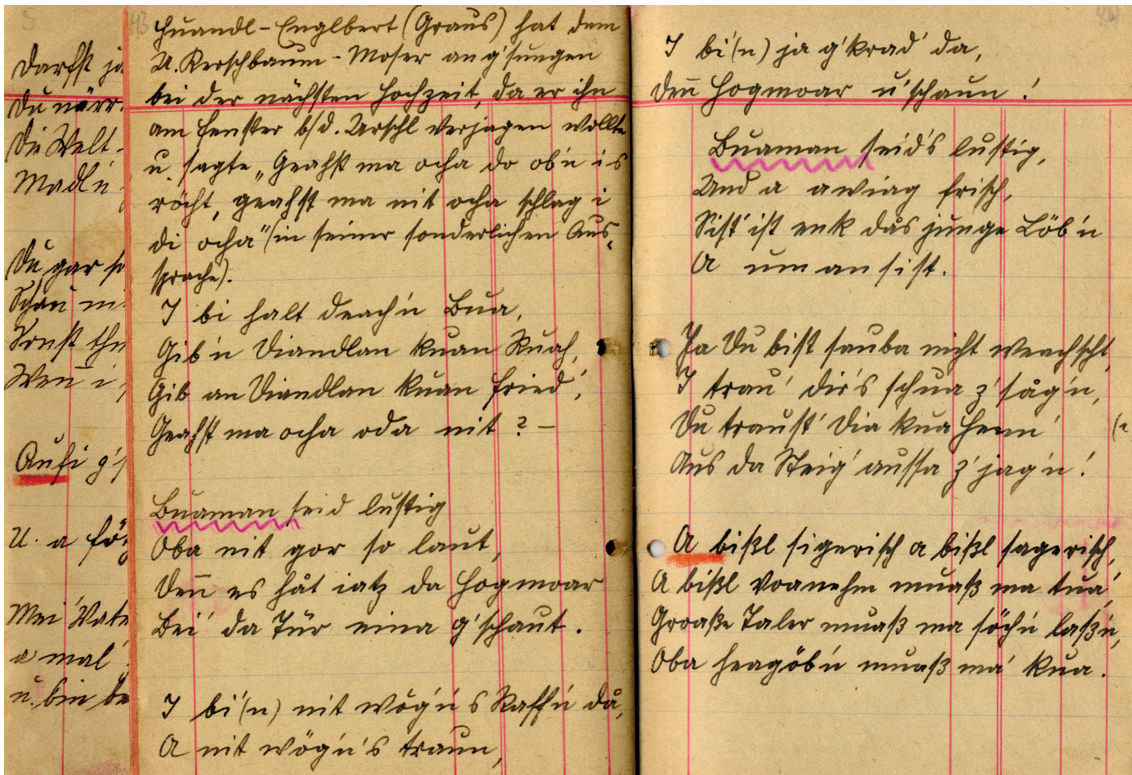 5
Darfst ja
Du närr.
Die Welt
Madl'n
Du gar so
Schau mi
Sonst thu
Wenn i
Aufi g's
U. a
Mei' Vate
a mal'
u. bin be
43
Huandl-Englbert (Graus) hat dem
U. Kerschbaum-Moser ang'sungen
bei der nächsten Hochzeit, da er ihn
am Fenster b/d. Urschl verjagen wollte
u. sagte „Geahst ma ocha do ob'n is
röcht, geahst ma nit ocha schlag i
di ocha" (in seiner sonderlichen Aus-
sprache).
I bi halt deacht'n Bua,
Gib'n Diandlan kuan Ruah,
Gib an Diandlan kuan Fried',
Geahst ma ocha oda nit? –
Buaman seid lustig
Oba nit gor so laut,
Denn es håt iatz da Hogmoar
Bei da Tür eina g'schaut.
I bi'(n) nit wög'n s Raff'n då,
A nit wög'n's traun,
I bi'(n) ja g'krad' da,
Denn Hogmoar u'schaun!
Buaman seid's lustig,
Und a awiag frisch,
Sist ist enk das junge Löb'n
A umansist.
Ja Du bist sauba nicht weachscht,
I trau' dir's schua z'såg'n,
Du traust' Dia kua Henn'
Aus da Steig' aussa z'jag'n!
A bißl sigerisch a bißl sagerisch,
A bißl voanehm muaß ma tua',
Groaße Taler muaß ma söch'n laß'n,
Oba heagöb'n muaß ma' kua.